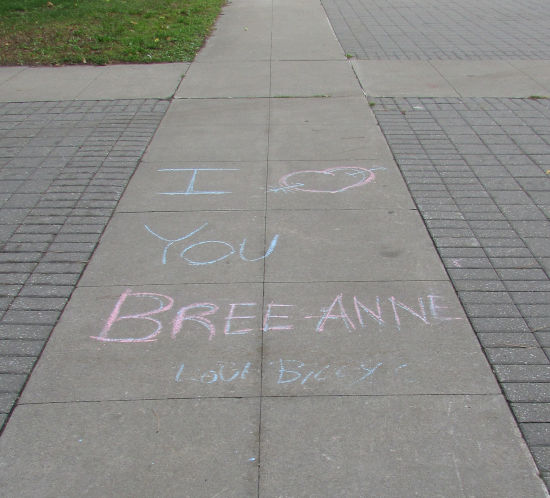 I ♥
You
BREE-ANNE
LOVE BILLY